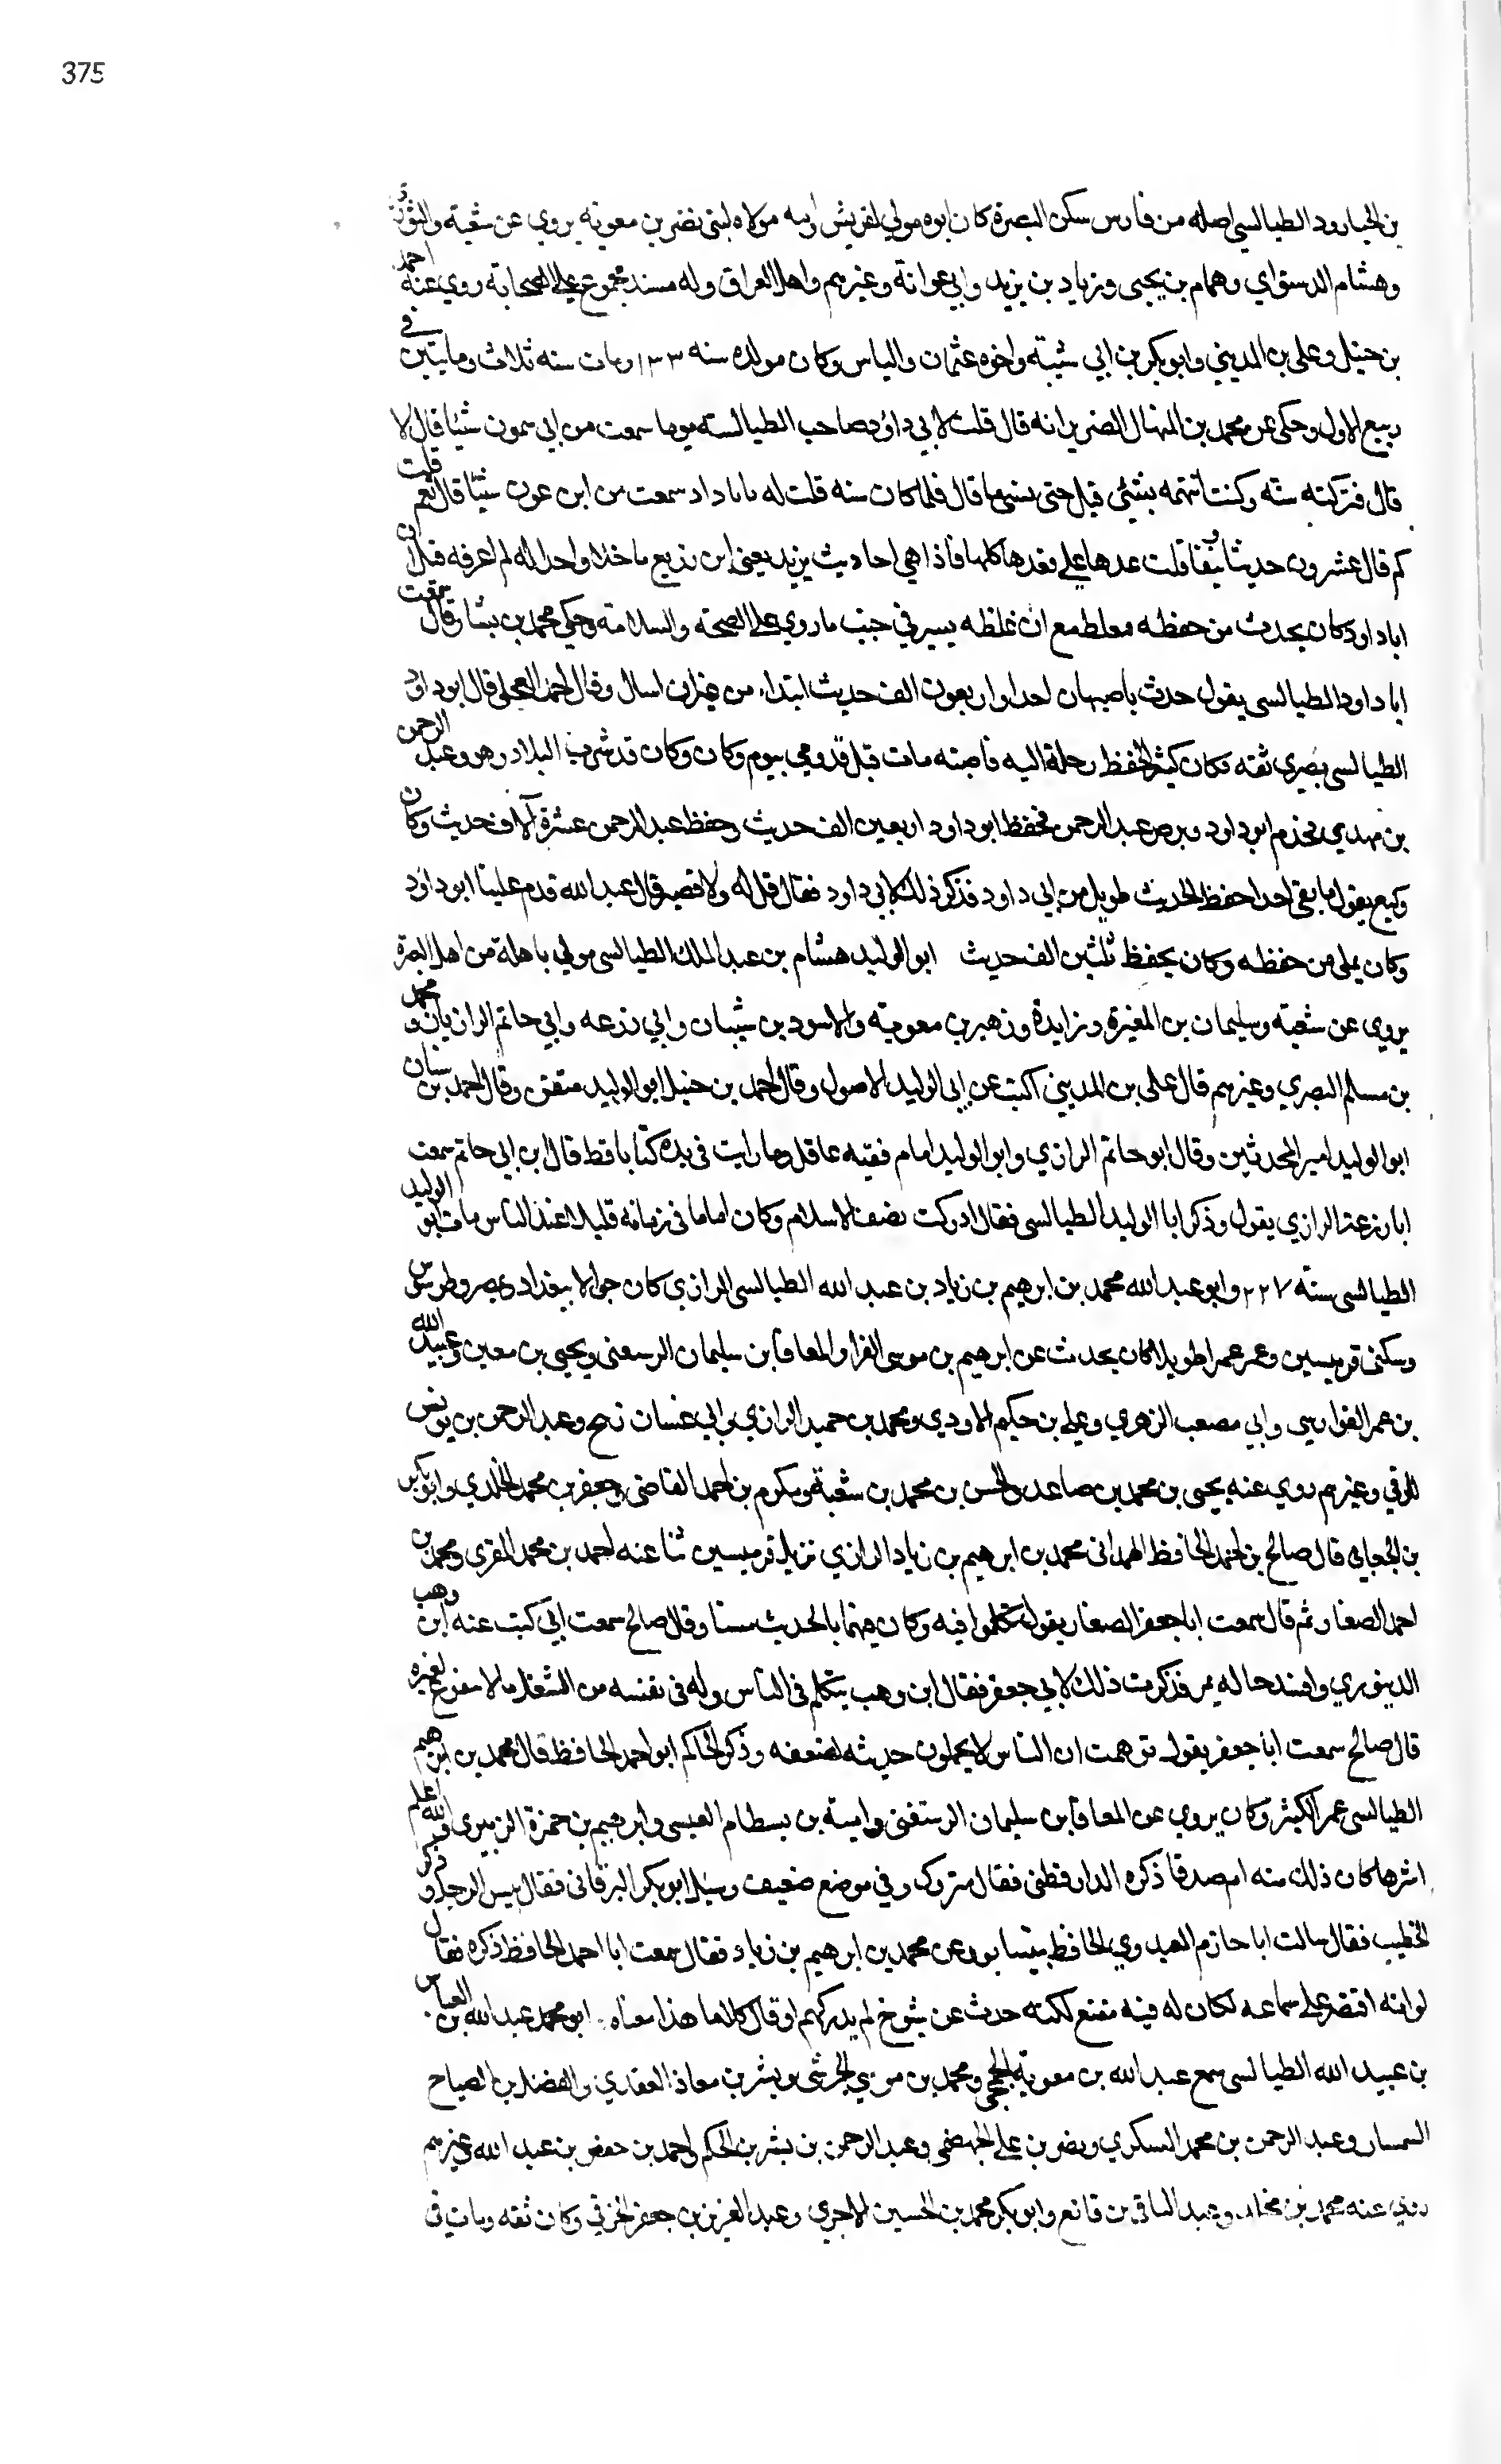 375
بن الجارود الطيالسي اصله من فارس سكن البصرة كان ابوه مولي لقريش وامه مولاه لبني نصر بن معويه يروي عن شعبة والثوري
وهشام الدستواي وهمام بن يحيى وزياد بن يزيد وابي عوانة وغيرهم واهل العراق وله مسند مجموع علي الصحابة روي عنه احمد
بن حنبل وعلي بن المديني وابو بكر بن ابي شيبة واخوه عثمان والياس وكان مولده سنه ١٣٣ ومات سنه ثلاث ومايتين في
ربيع الاول وحكى عن محمد بن المنهال الضرير انه قال قلت لابي داود صاحب الطيالسه يوما سمعت من ابي عون شيئا قال لا
قال فتركته سنه وكنت اتهمه بشئي قبل حتى نسيها قال فلما كان سنه قلت له يابا داد سمعت من ابن عون شيئا قال نعم قلت
كم قال عشرون حديثا ونيفا قلت عدها علي فعدها كلها فاذا هي احاديث يزيد يعني ابن زريع ما خلا واحدا له لم اعرفه قيل ان
ابا داود كان يحدث من حفظه مغلط مع ان غلظه يسير في جنب ماروي علي الصحة والسلامة وحكي محمد بن بشار قال سمعت
ابا داود الطيالسي يقول حدثت باصبهان احدا واربعون الف حديث ابتداء من غير ان اسال وقال احمد العجلي قال ابو داود
الطيالسي بصري ثقه وكان كثير الحفظ رحلة اليه فاصبته مات قبل قدومي بيوم وكان وكان قد شرب البلاد وهو وعبد الرحمن
بن مهدي فجذم ابو داود وبرص عبد الرحمن فحفظ ابو داود اربعين الف حديث وحفظ عبد الرحمن عشرة آلاف حديث وكان
وكيع يقول ما بقي احد احفظ لحديث طويل من ابي داود فذكر ذلك لابي داود فقال قل له ولا قصير قال عبد الله قدم علينا ابو داود
وكان يملي من حفظه وكان يحفظ ثلثين الف حديث ابو الوليد هشام بن عبد الملك الطيالسي مولي باهلة من اهل البصرة
يروي عن شعبة وسليمان بن المغيرة وزايدة وزهير بن معوية والاسود بن شيبان وابي زرعه وابي حاتم الرازيان و محمد
بن مسلم البصري وغيرهم قال علي بن المديني اكتب عن ابي الوليد الاصول وقال احمد بن حنبل ابو الوليد متقن وقال احمد بن سنان
ابو الوليد امير المحدثين وقال ابو حاتم الرازي وابو الوليد امام فقيه عاقل وما رايت في يده كتابا قط قال ابن ابي حاتم سمعت
ابا زرعة الرازي يقول وذكر ابا الوليد الطيالسي فقال ادركت نصف الاسلام وكان اماما في زمانه قليلا عند الناس مات ابو الوليد
الطيالسي سنة ٢٢٧ وابو عبد الله محمد بن ابرهيم بن زياد بن عبد الله الطيالسي الرازي كان جوالا ببغداد وبمصر وطرسوس
وسكن قرميسين وعمر عمرا طويلا كان يحدث عن ابرهيم بن موسى الفرا والمعافا بن سليمان الرسعني ويحيى بن معين وعبيد الله
بن عمر القواريري وابي مصعب الزهري وعلي بن حكيم الاودي ومحمد بن حميد الرازي وابي غسان زنيج وعبد الرحمن بن يونس
الرقي وغيرهم روي عنه يحيى بن محمد بن صاعد والحسن بن محمد بن شعبة ومكرم بن احمد القاضي وجعفر بن محمد الخلدي وابو بكر
بن الجعابي قال صالح بن احمد الحافظ الهمداني محمد بن ابرهيم بن زياد الرازي نزيل قرميسين ثنا عنه احمد بن محمد المقري ومحمد بن
احمد الصفار ثم قال سمعت ابا جعفر الصفار يقول تكلموا فيه وكان فهما بالحديث مسنا وقال صالح سمعت ابي كتب عنه ابن وهب
الدينوري وافسد حاله بمر فذكرت ذلك لابي جعفر فقال ابن وهب يتكلم في الناس وله في نفسه من الشغل مالا يتفرغ لغيره
قال صالح سمعت ابا جعفر يقول توهمت ان الناس لا يحملون حديثه لضعفه وذكر الحاكم ابو احمد الحافظ قال محمد بن ابرهيم
الطيالسي عمر الكثير وكان يروي عن المعافا بن سليمان الرسعني وامية بن بسطام العيسي وابرهيم بن حمزة الزبيري والله اعلم
اثرها كان ذلك منه ام صدقا ذكره الدارقطني فقال متروك وفي موضع ضعيف وسئل ابو بكر البرقاني فقال بيس الرجل وذكر
الخطيب فقال سالت ابا حازم العبدوي الحافظ بنيسابور عن محمد بن ابرهيم بن زياد فقال سمعت ابا احمد الحافظ ذكره فقال
لو انه اقتصر علي سماعه لكان له فيه مقنع لكنه حدث عن شيوخ لم يدركهم او قال كلاما هذا معناه ابو محمد عبد الله بن العباس
بن عبيد الله الطيالسي سمع عبد الله بن معوية الجمحي ومحمد بن موسي الجرشي وبشر بن معاذ العقدي والفضل بن الصباح
السمسار وعبد الرحمن بن محمد السكري ونصر بن علي الجهضمي وعبد الرحمن بن بشر بن الحكم واحمد بن حفص بن عبد الله وغيرهم
روي عنه محمد بن مخلد وعبد الباقي بن قانع وابو بكر محمد بن الحسين الاجري وعبد العزيز بن جعفر الخرقي وكان ثقه ومات في